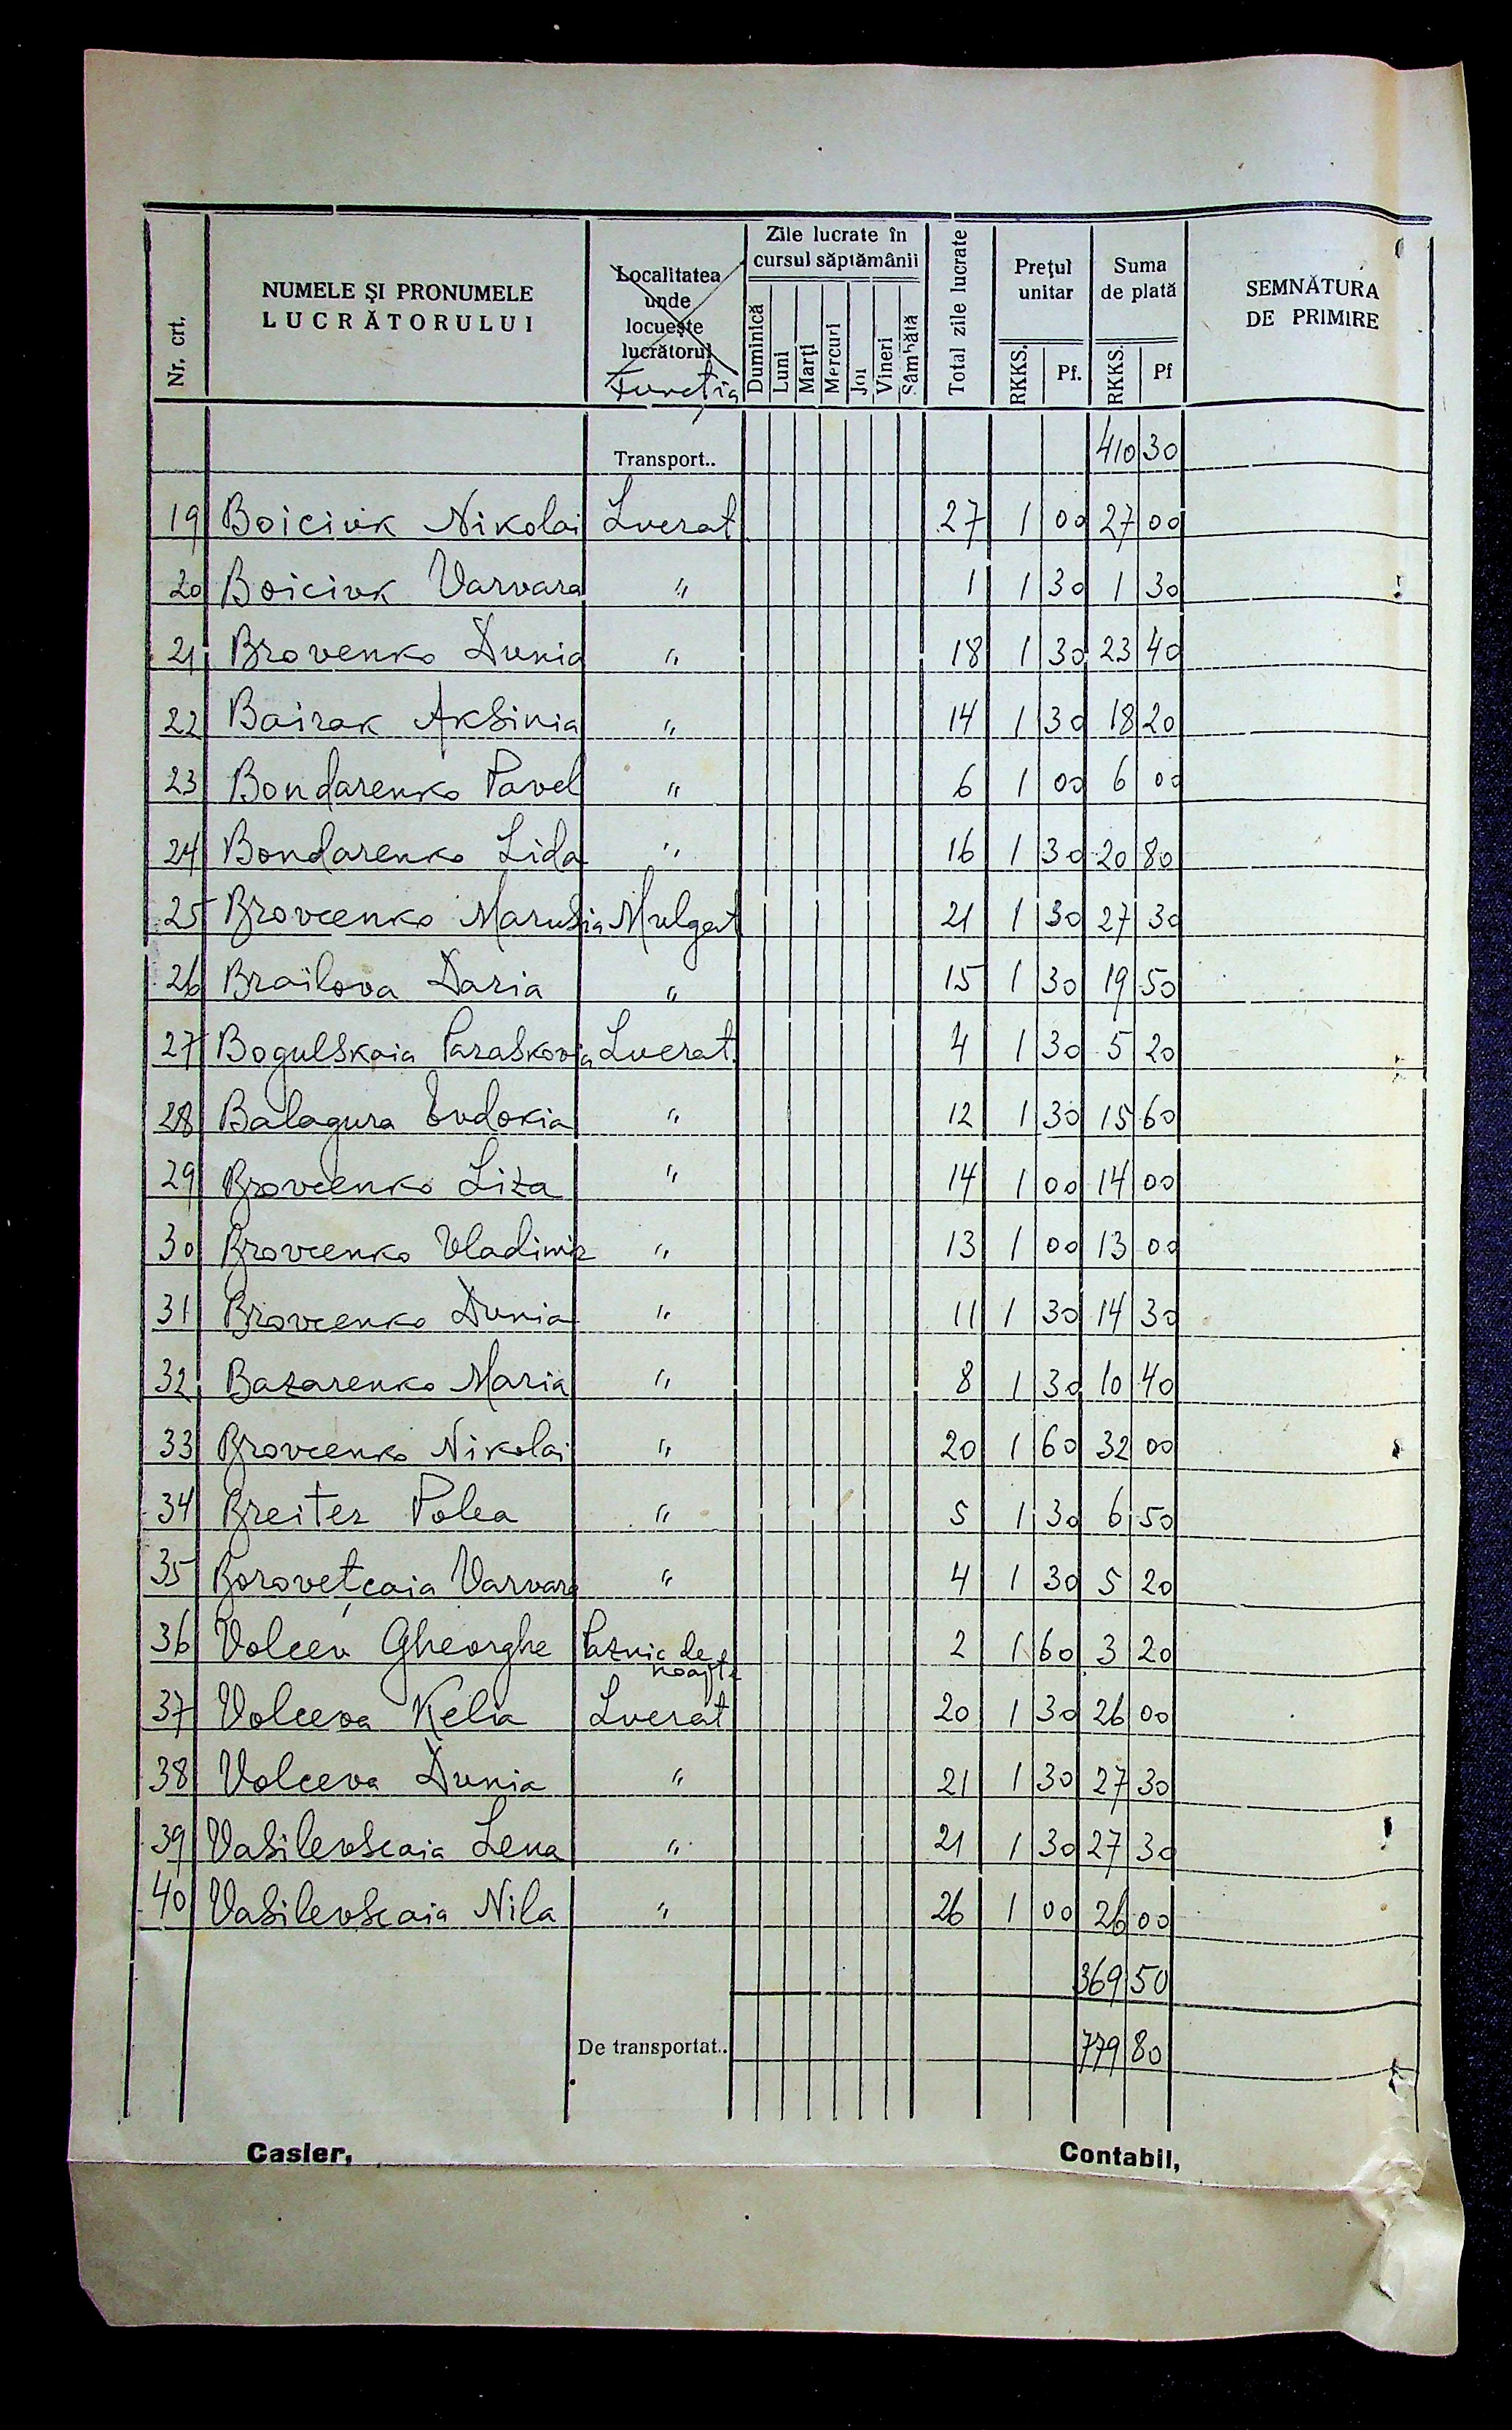 Nr. crt. NUMELE ȘI PRONUMELE LUCRĂTORULUI Localitatea unde locuește lucrătorul Funcția Zile lucrate în cursul săptămânii Duminică Luni Marți Mercuri Joi Vineri Sâmbătă Total zile lucrate Prețul unitar RKKS. Pf. Suma de plată RKKS. Pf SEMNĂTURA DE PRIMIRE
Transport.. 410 30
19 Boiciuk Nikolai Lucrat 27 1 00 27 00
20 Boiciuk Varvara " 1 1 30 1 30
21 Brovenko Dunia " 18 1 30 23 40
22 Bairak Aksinia " 14 1 30 18 20
23 Bondarenko Pavel " 6 1 00 6 00
24 Bondarenko Lida " 16 1 30 20 80
25 Brovcenko Marusia Mulgat 21 1 30 27 30
26 Brailova Daria " 15 1 30 19 50
27 Bogulskaia Paraskovia Lucrat. 4 1 30 5 20
28 Balagura Evdokia " 12 1 30 15 60
29 Brovcenko Liza " 14 1 00 14 00
30 Brovcenko Vladimir " 13 1 00 13 00
31 Brovcenko Dunia " 11 1 30 14 30
32 Bazarenko Maria " 8 1 30 10 40
33 Brovcenko Nikolai " 20 1 60 32 00
34 Breiter Polea " 5 1 30 6 50
35 Borovețcaia Varvara " 4 1 30 5 20
36 Volcev Gheorghe Paznic de noapte 2 1 60 3 20
37 Volceva Kelia Lucrat 20 1 30 26 00
38 Volceva Dunia " 21 1 30 27 30
39 Vasilevscaia Lena " 21 1 30 27 30
40 Vasilevscaia Nila " 26 1 00 26 00
369 50
De transportat.. 779 80
Casier, Contabil,